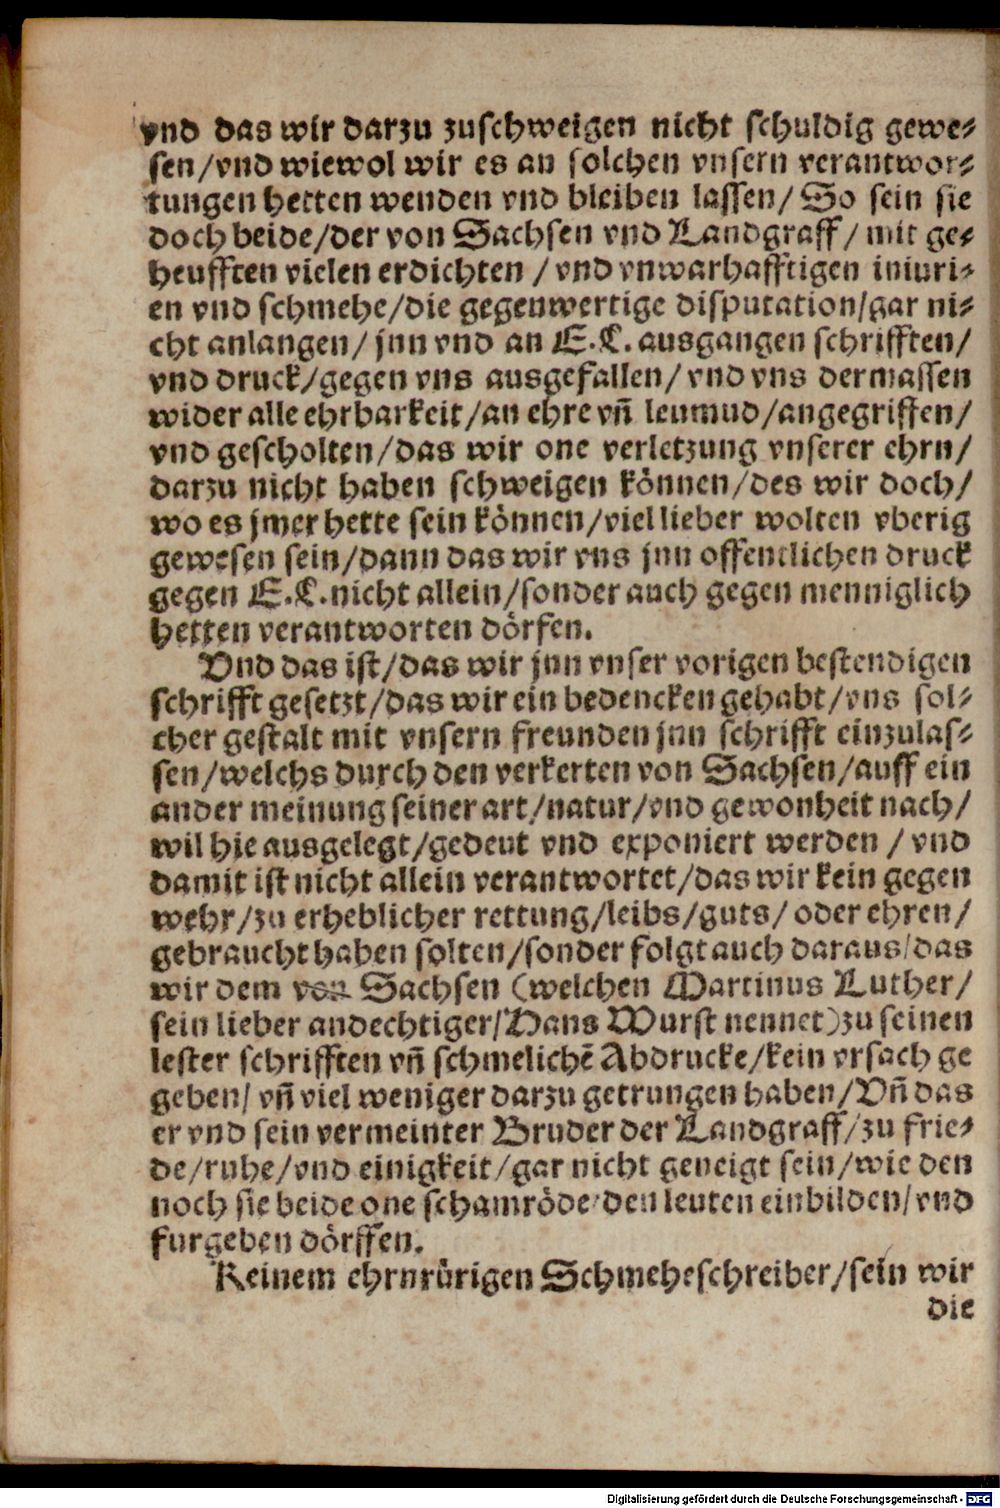 vnd das wir darzu zuschweigen nicht schuldig gewe⸗
sen/vnd wiewol wir es an solchen vnsern verantwor⸗
tungen hetten wenden vnd bleiben lassen/ So sein sie
doch beide/der von Sachsen vnd Landgraff/ mit ge⸗
heufften vielen erdichten / vnd vnwarhafftigen iniuri⸗
en vnd schmehe/die gegenwertige disputation/gar ni⸗
cht anlangen/ jnn vnd an E.L. ausgangen schrifften/
vnd druck/gegen vns ausgefallen/ vnd vns dermassen
wider alle ehrbarkeit/an ehre vn̄ leumud/angegriffen/
vnd gescholten/das wir one verletzung vnserer ehrn/
darzu nicht haben schweigen können/des wir doch/
wo es jmer hette sein können/viel lieber wolten vberig
gewesen sein/dann das wir vns jnn offentlichen druck
gegen E.L. nicht allein/sonder auch gegen menniglich
hetten verantworten dörfen.
Vnd das ist/das wir jnn vnser vorigen bestendigen
schrifft gesetzt/das wir ein bedencken gehabt/vns sol⸗
cher gestalt mit vnsern freunden jnn schrifft einzulas⸗
sen/welchs durch den verkerten von Sachsen/auff ein
ander meinung seiner art/natur/vnd gewonheit nach/
wil hie ausgelegt/gedeut vnd exponiert werden / vnd
damit ist nicht allein verantwortet/das wir kein gegen
wehr/zu erheblicher rettung/leibs/guts/ oder ehren/
gebraucht haben solten/sonder folgt auch daraus/das
wir dem von Sachsen (welchen Martinus Luther/
sein lieber andechtiger/Hans Wurst nennet) zu seinen
lester schrifften vn̄ schmelichē Abdrucke/kein vrsach ge
geben/ vn̄ viel weniger darzu getrungen haben/Vn̄ das
er vnd sein vermeinter Bruder der Landgraff/zu frie⸗
de/ruhe/vnd einigkeit/gar nicht geneigt sein/wie den
noch sie beide one schamröde den leuten einbilden/vnd
furgeben dörffen.
Keinem ehrnrürigen Schmeheschreiber/sein wir
die
Digitalisierung gefördert durch die Deutsche Forschungsgemeinschaft - DFG